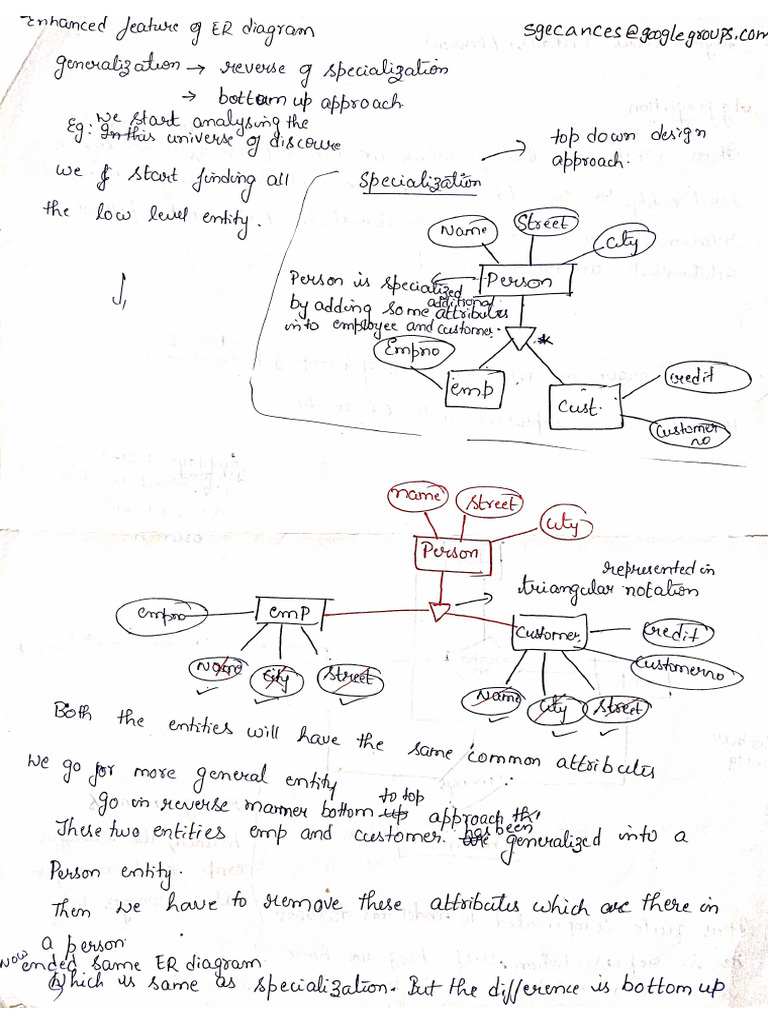 Enhanced feature of ER diagram
sgecances@googlegroups.com
generalization → reverse of specialization
→ bottom up approach
we start analysing the
Eg: In this universe of discourse
we start finding all
the low level entity.
top down design
approach.
Specialization
Name
Street
City
Person
Person is specialized
by adding some additional attributes
into employee and customer.
Empno
emp
Cust.
credit
Customer
no
name
street
city
Person
represented in
triangular notation
empno
emp
Customer
credit
customerno
Name
City
Street
Name
City
Street
Both the entities will have the same common attributes
We go for more general entity
go in reverse manner bottom up to top approach
These two entities emp and customer. has been generalized into a
Person entity.
Then we have to remove these attributes which are there in
a person
Now ended same ER diagram
Which is same as specialization. But the difference is bottom up